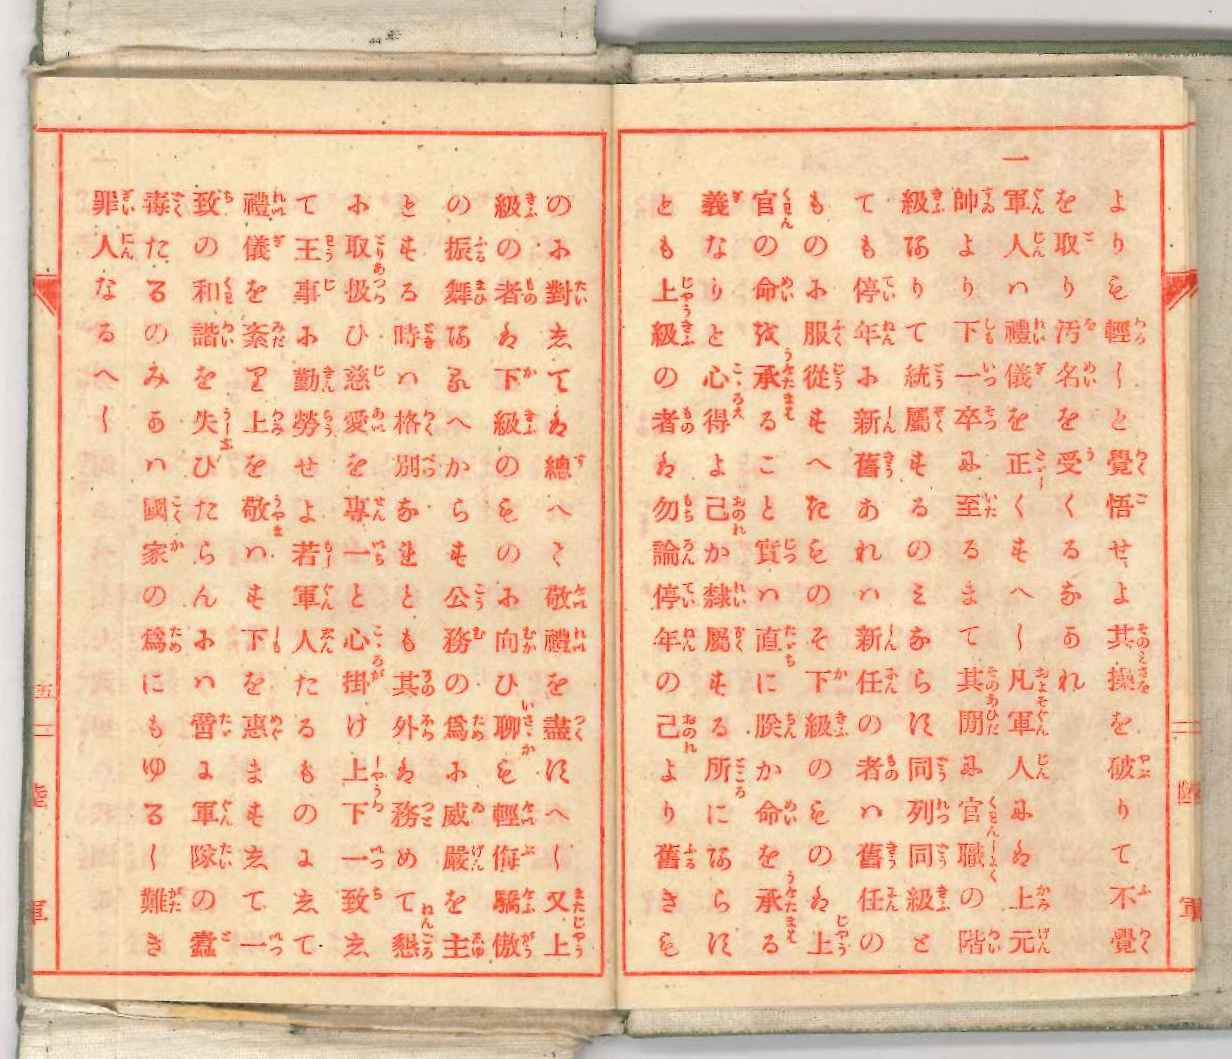 よりも輕しと覺悟せよ其操を破りて不覺
を取り汚名を受くるなかれ
一 軍人ハ禮儀を正くすへし凡軍人には上元
帥より下一卒に至るまて其間に官職の階
級ありて統屬するのみならす同列同級と
ても停年に新舊あれハ新任の者ハ舊任の
ものに服從すへきものそ下級のものは上
官の命を承ること實ハ直に朕か命を承る
義なりと心得よ己か隸屬する所にあらす
とも上級の者は勿論停年の己より舊きも
のに對しては總へて敬禮を盡すへし又上
級の者は下級のものに向ひ聊も輕侮驕傲
の振舞あるへからす公務の爲に威嚴を主
とする時ハ格別なれとも其外は務めて懇
に取扱ひ慈愛を專一と心掛け上下一致し
て王事に勤勞せよ若軍人たるものにして
禮儀を紊り上を敬ハす下を惠ますして一
致の和諧を失ひたらんにハ啻に軍隊の蠹
毒たるのみかハ國家の爲にもゆるし難き
罪人なるへし
五
陸軍